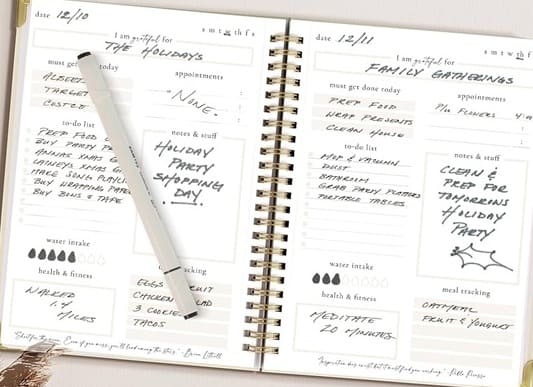 date 12/10
s m t w th f s
I am grateful for
THE HOLIDAYS
must get done today
TARGET
COSTCO
appointments
"NONE."
:
:
:
to-do list
PREP FOOD
BUY PARTY
ANNAS XMAS
LAINEYS XMAS
MAKE SONG
BUY WRAPPING
BUY BOWS & TAPE
notes & stuff
HOLIDAY
PARTY
SHOPPING
DAY.
water intake
health & fitness
WALKED
1.4
MILES
tracking
EGGS FRUIT
CHICKEN
3 COOKIES
TACOS
date 12/11
s m t w th f s
I am grateful for
FAMILY GATHERINGS
must get done today
PREP FOOD
WRAP PRESENTS
CLEAN HOUSE
appointments
P/U FLOWERS
:
:
to-do list
MOP & VACUUM
DUST
BATHROOM
GRAB PARTY PLATTERS
PORTABLE TABLES
notes & stuff
CLEAN &
PREP FOR
TOMORROWS
HOLIDAY
PARTY
water intake
health & fitness
MEDITATE
20 MINUTES
meal tracking
OATMEAL
FRUIT & YOUGURT